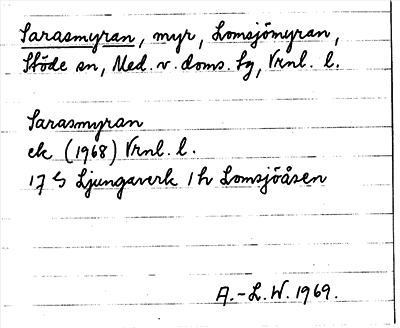 Sarasmyran, myr, Lomsjömyran,
Stöde sn, Med. v. doms. tg, Vrnl. l.
Sarasmyran
ek (1968) Vrnl. l.
17 S Ljungaverk 1 h Lomsjöåsen
A.-L. W. 1969.